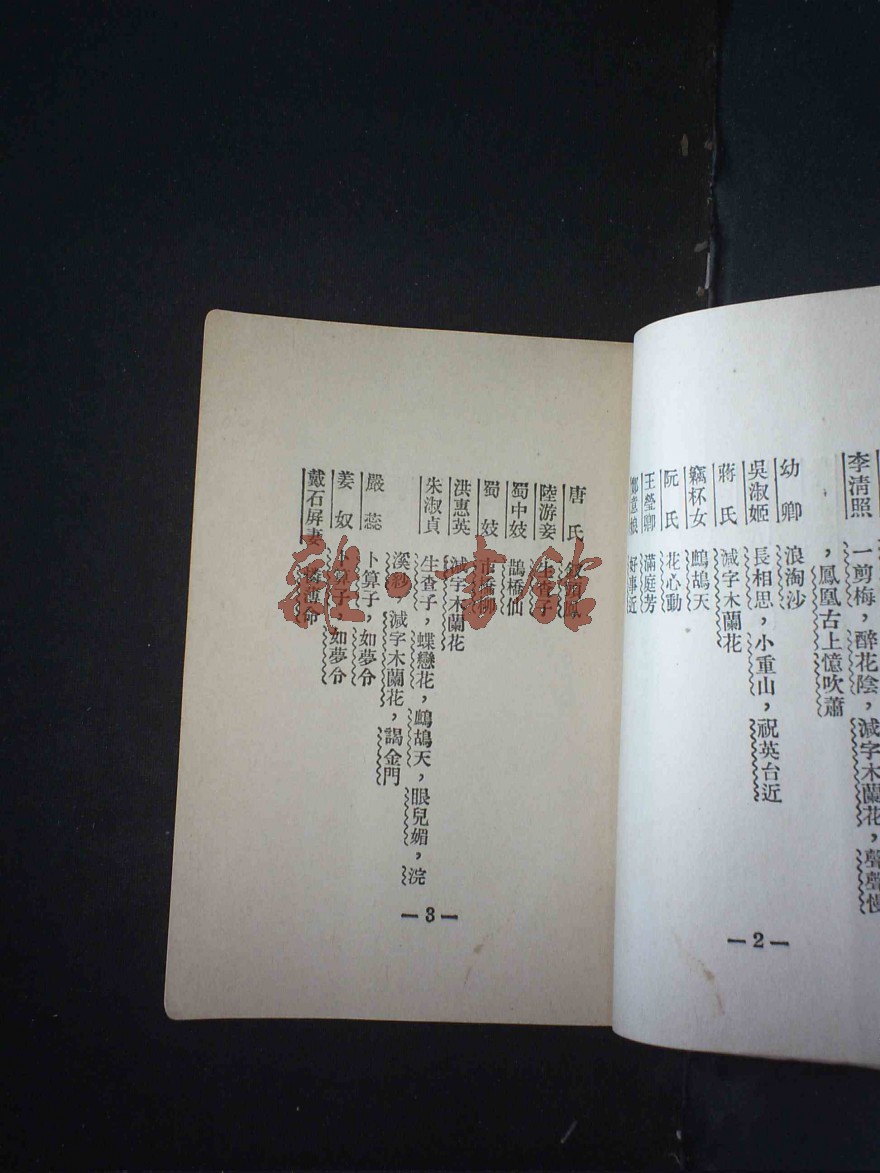 李清照 一剪梅，醉花陰，減字木蘭花，聲聲慢
，鳳凰古上憶吹蕭
幼卿 浪淘沙
吳淑姬 長相思，小重山，祝英台近
蔣氏 減字木蘭花
竊杯女 鷓鴣天
阮氏 花心動
王瑩卿 滿庭芳
鄭意娘 好事近
—2—
唐氏 釵頭鳳
陸游妾 生查子
蜀中妓 鵲橋仙
蜀妓 市橋柳
洪惠英 減字木蘭花
朱淑貞 生查子，蝶戀花，鷓鴣天，眼兒媚，浣
溪紗，減字木蘭花，謁金門
嚴蕊 卜算子，如夢令
姜奴 卜算子，如夢令
戴石屏妻 憐薄命
—3—
雜·書館